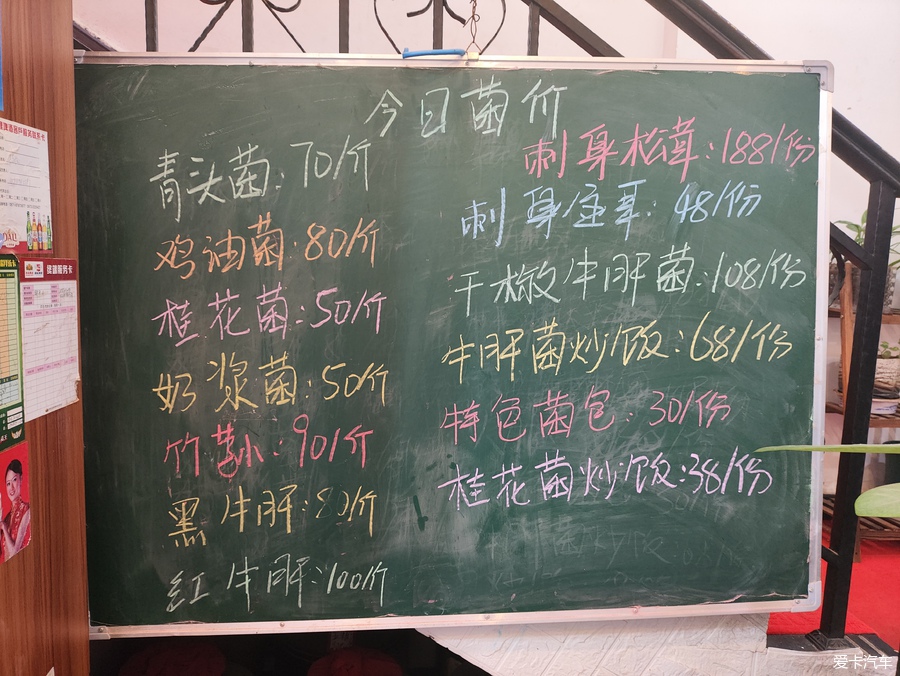 今日菌价
青头菌:70/斤
鸡油菌:80/斤
桂花菌:50/斤
奶浆菌:50/斤
竹荪:90/斤
黑牛肝:80/斤
红牛肝:100/斤
刺身松茸:188/份
刺身座耳:48/份
干椒牛肝菌:108/份
牛肝菌炒饭:68/份
特色菌包:30/份
桂花菌炒饭:38/份
啤酒服务卡
爱卡汽车